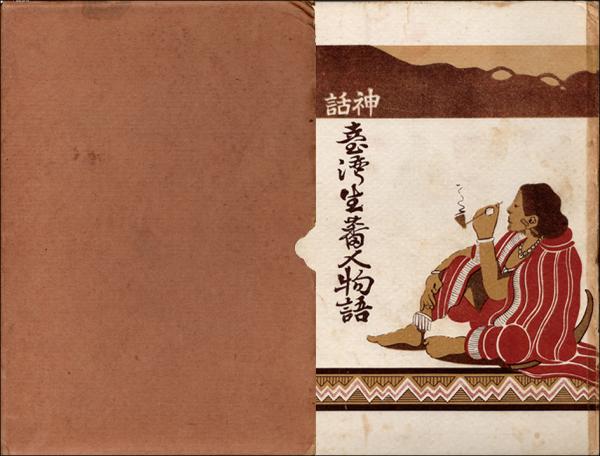 神話
臺湾生蕃人物語